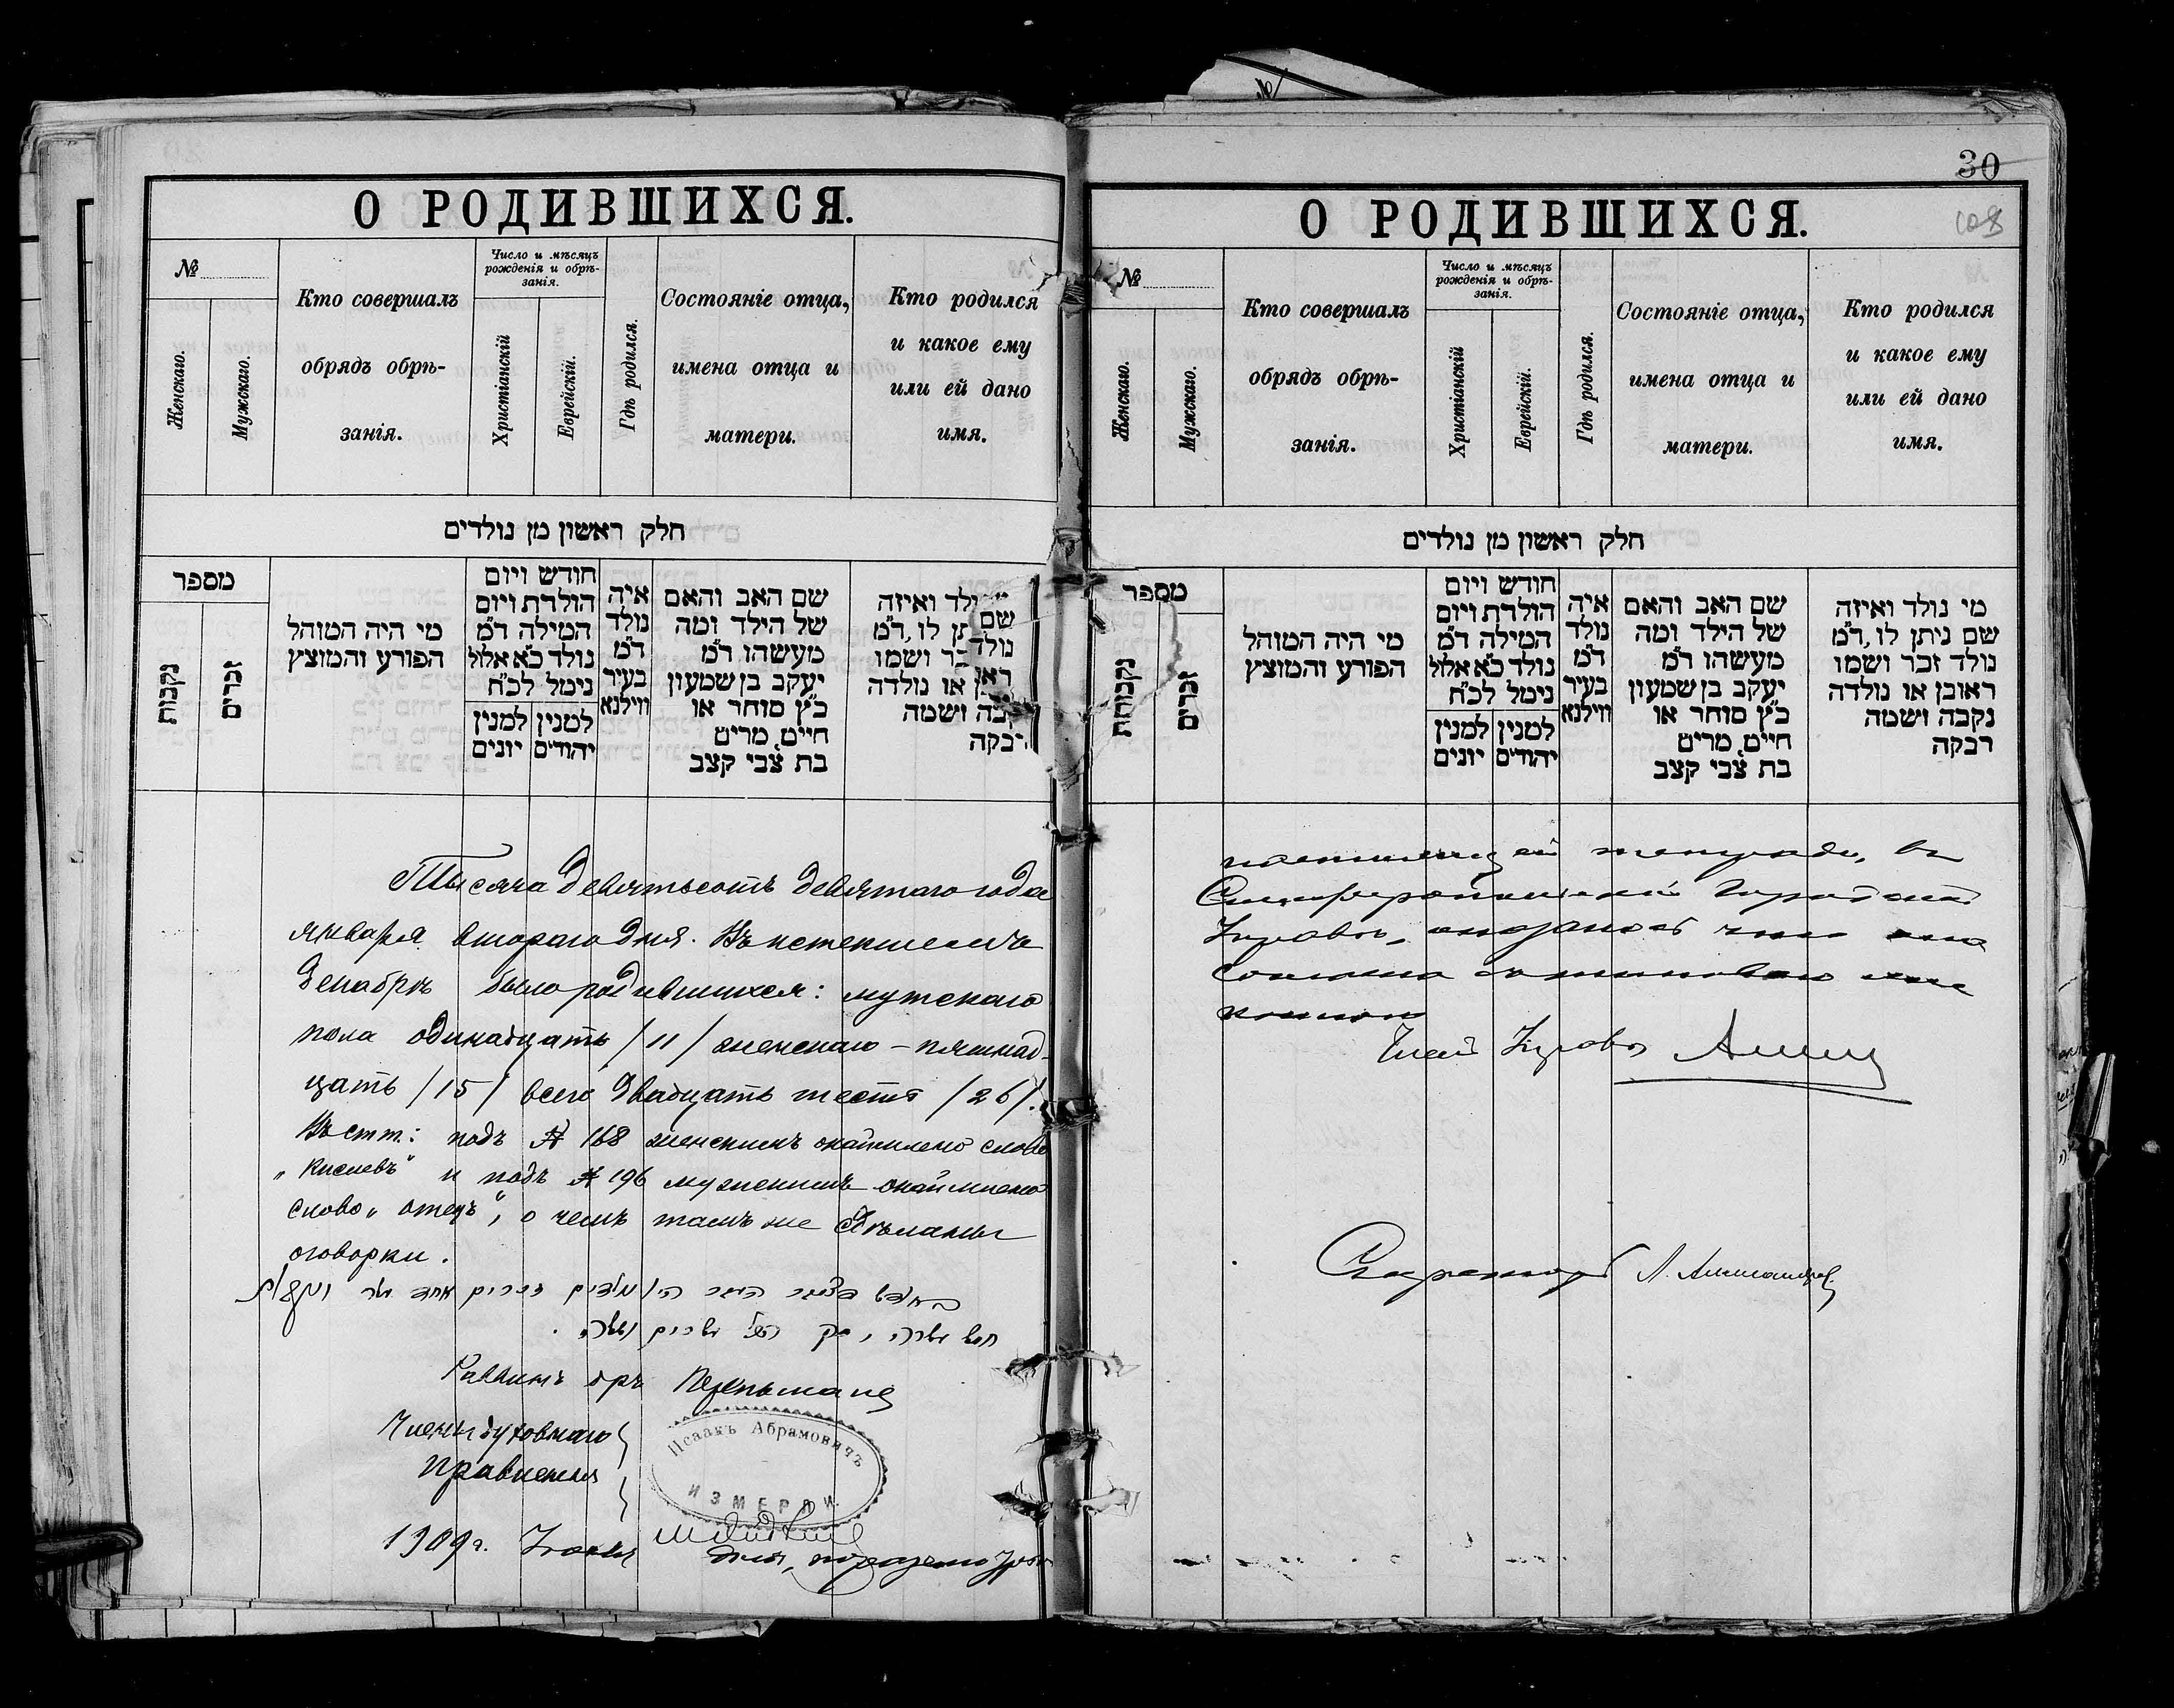 О РОДИВШИХСЯ.
№
Женскаго.
Мужскаго.
Кто совершалъ
обрядъ обрѣ-
занія.
Число и мѣсяцъ
рожденія и обрѣ-
занія.
Христіанскій
Еврейскій.
Гдѣ родился.
Состояніе отца,
имена отца и
матери.
Кто родился
и какое ему
или ей дано
имя.
חלק ראשון מן נולדים
מספר
נקבות
זכרים
מי היה המוהל
הפורע והמוצץ
חודש ויום
הולדת ויום
המילה ד״מ
נולד כ״א אלול
נימל לכ״ח
למנין יהודים
למנין יונים
איה
נולד
ד״מ
בעיר
ווילנא
שם האב והאם
של הילד ומה
מעשהו ד״מ
יעקב בן שמעון
כ״ץ סוחר או
חייט, מרים
בת צבי קצב
ולד ואיזה
שם תן לו, ד״מ
נולד כר ושמו
ראו או נולדה
בה ושמה
רבקה
Тысяча девятьсотъ девятаго года
января второго дня. Въ истекшемъ
Декабрѣ было родившихся: мужскаго
пола одинадцать /11/ женскаго – пятнад-
цать /15/ всего двадцать шесть /26/.
Въ стт.: подъ № 168 женскимъ окаймлено слово
„Кислевъ" и подъ № 196 мужскимъ окаймлено
слово „отецъ", о чемъ тамъ же сдѣланы
оговорки.
Раввинъ
Члены духовнаго
Правленія
Исаакъ Абрамовичъ
ИЗМЕРЛИ.
1909 г. дня,
30
108
О РОДИВШИХСЯ.
№
Женскаго.
Мужскаго.
Кто совершалъ
обрядъ обрѣ-
занія.
Число и мѣсяцъ
рожденія и обрѣ-
занія.
Христіанскій
Еврейскій.
Гдѣ родился.
Состояніе отца,
имена отца и
матери.
Кто родился
и какое ему
или ей дано
имя.
חלק ראשון מן נולדים
מספר
נקבות
זכרים
מי היה המוהל
הפורע והמוצץ
חודש ויום
הולדת ויום
המילה ד״מ
נולד כ״א אלול
נימל לכ״ח
למנין יהודים
למנין יונים
איה
נולד
ד״מ
בעיר
ווילנא
שם האב והאם
של הילד ומה
מעשהו ד״מ
יעקב בן שמעון
כ״ץ סוחר או
חייט, מרים
בת צבי קצב
מי נולד ואיזה
שם ניתן לו, ד״מ
נולד זכר ושמו
ראובן או נולדה
נקבה ושמה
רבקה
Симферопольской Городской
Управы, оказалось что она
Членъ Управы
Секретарь